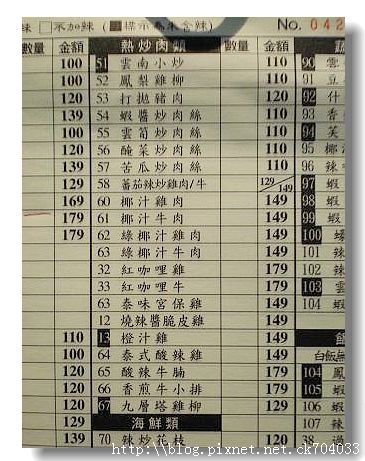 辣 □不加辣 (■標示為未含辣) No. 042
數量 金額 熱炒肉類 數量 金額
100 51 雲南小炒 110 90 雲
100 52 鳳梨雞柳 110 91 豆
120 53 打拋豬肉 120 92 什
139 54 蝦醬炒肉絲 110 93 香
100 55 雲筍炒肉絲 110 94 芙
120 56 醃菜炒肉絲 110 95 椰
139 57 苦瓜炒肉絲 110 96 辣
129 58 蕃茄辣炒雞肉/牛 129/149 97 蝦
169 60 椰汁雞肉 149 98 蝦
179 61 椰汁牛肉 149 99 蝦
179 62 綠椰汁雞肉 149 100
63 綠椰汁牛肉 149 101 辣
32 紅咖哩雞 179 102 辣
33 紅咖哩牛 179 103 雲
63 泰味宮保雞 149 104 蝦
12 燒辣醬脆皮雞 149
110 13 橙汁雞 149 飯
100 64 泰式酸辣雞 149 白飯無
120 65 酸辣牛腩 179 104 鳳
120 66 香煎牛小排 179 105 蝦
120 67 九層塔雞柳 129 106 蝦
129 海鮮類 107 辣
139 70 辣炒花枝 120 38 過
http://blog.pixnet.net/ck704033